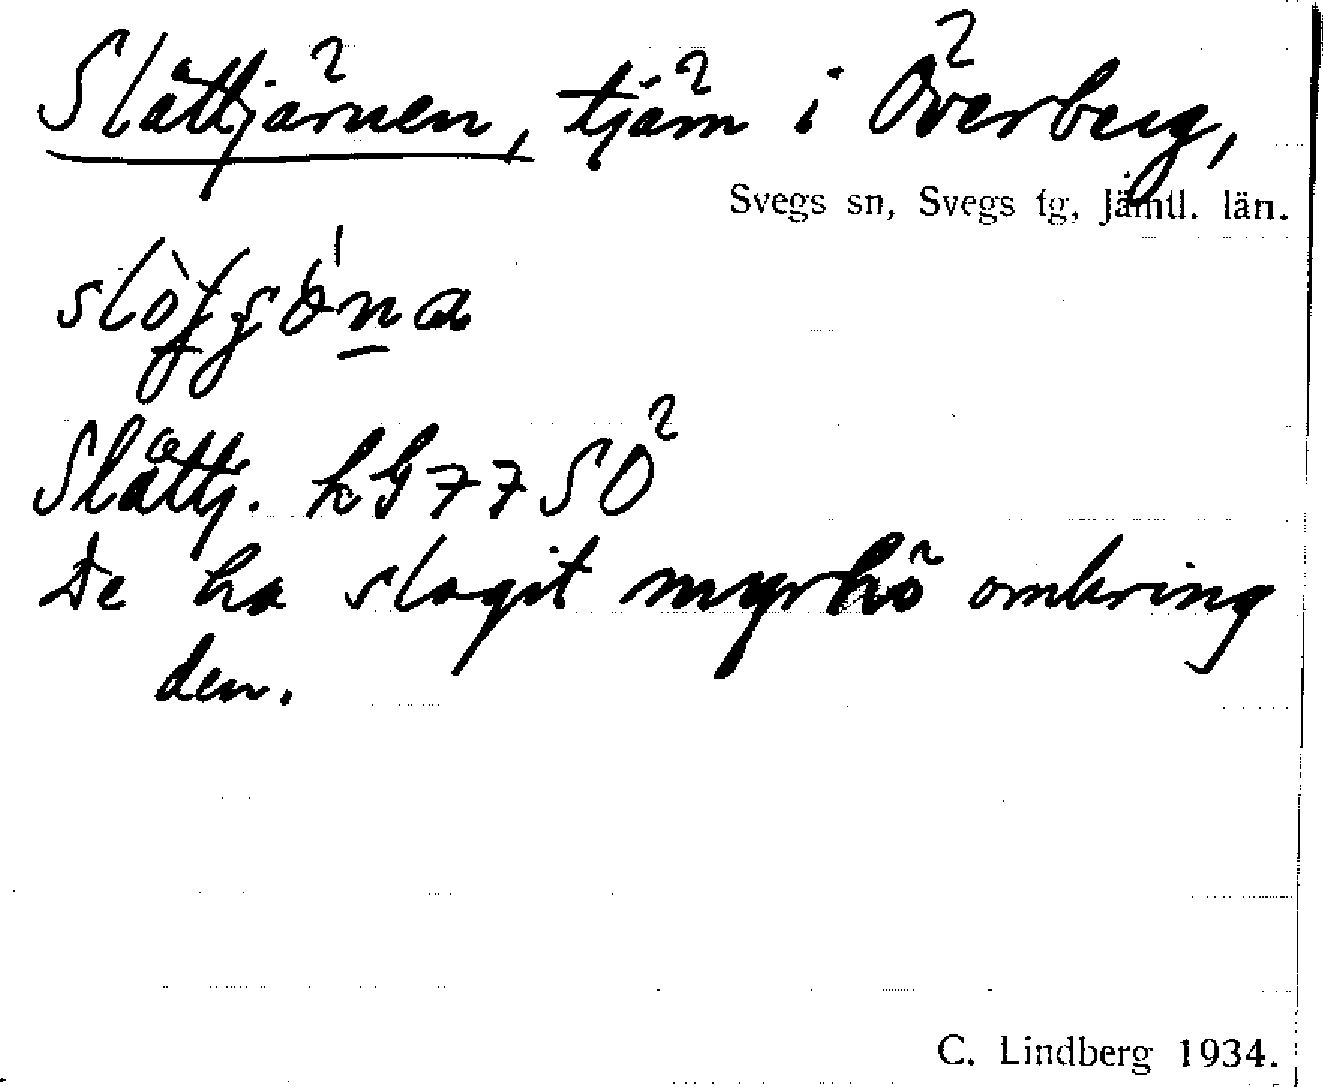 Slåttjärnen, tjärn i Överberg,
Svegs sn, Svegs tg, Jämtl. län.
Slåttj. hG77SO
De ha slagit myrhö omkring
den.
C. Lindberg 1934.